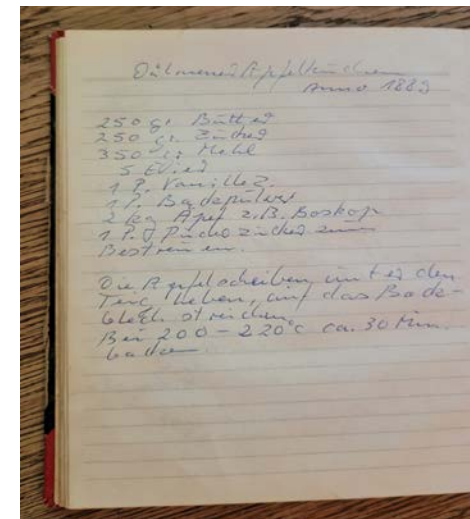 Dülmener Apfelkuchen
Anno 1889
250 gr Butter
250 gr Zucker
350 gr Mehl
5 Eier
1 P. Vanillez.
1 P. Backpulver
2 kg Äpfel z.B. Boskop
1 P. Puderzucker zum
Bestreuen.
Die Apfelscheiben unter den
Teig heben, auf das Back-
blech streichen.
Bei 200 - 220°C ca. 30 Min.
backen.